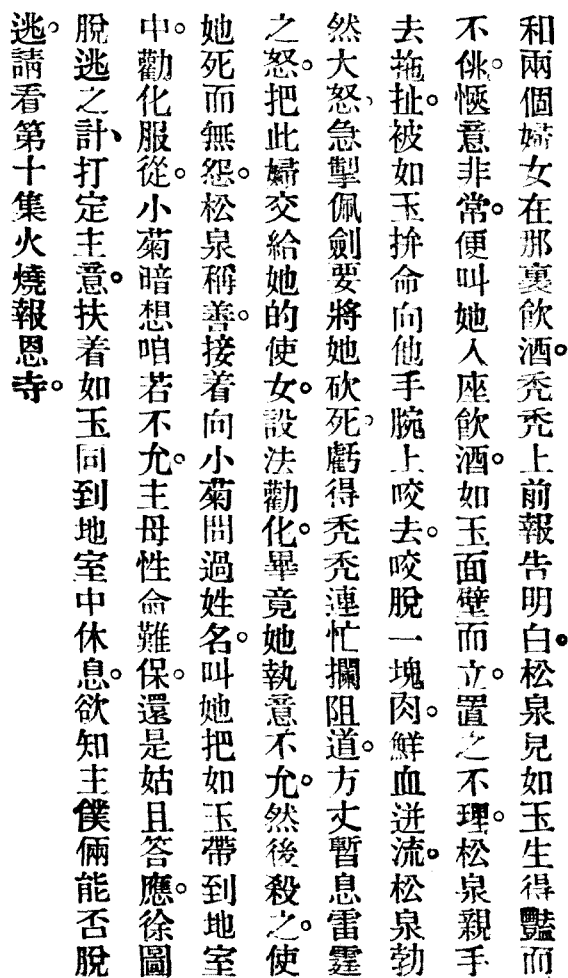 和兩個婦女在那裏飲酒。禿禿上前報告明白。松泉見如玉生得豔而
不佻。愜意非常。便叫她入座飲酒。如玉面壁而立。置之不理。松泉親手
去拖扯。被如玉拚命向他手腕上咬去。咬脫一塊肉。鮮血迸流。松泉勃
然大怒、急掣佩劍要將她砍死、虧得禿禿連忙攔阻道。方丈暫息雷霆
之怒。把此婦交給她的使女。設法勸化。畢竟她執意不允。然後殺之。使
她死而無怨。松泉稱善。接着向小菊問過姓名。叫她把如玉帶到地室
中。勸化服從。小菊暗想咱若不允。主母性命難保。還是姑且答應。徐圖
脫逃之計、打定主意。扶着如玉同到地室中休息。欲知主僕倆能否脫
逃。請看第十集火燒報恩寺。